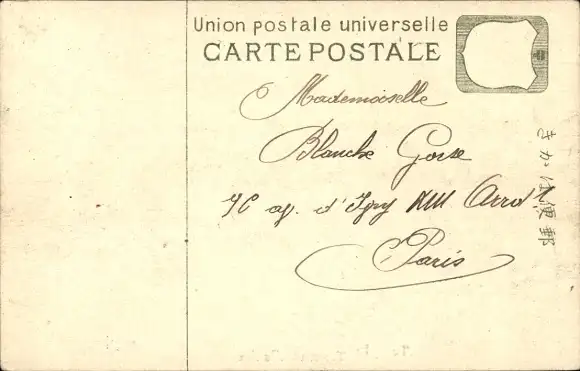 Union postale universelle
CARTE POSTALE
Mademoiselle
Blanche Gosse
70 av. d'Ivry XIII Arrdt
Paris
郵便はがき